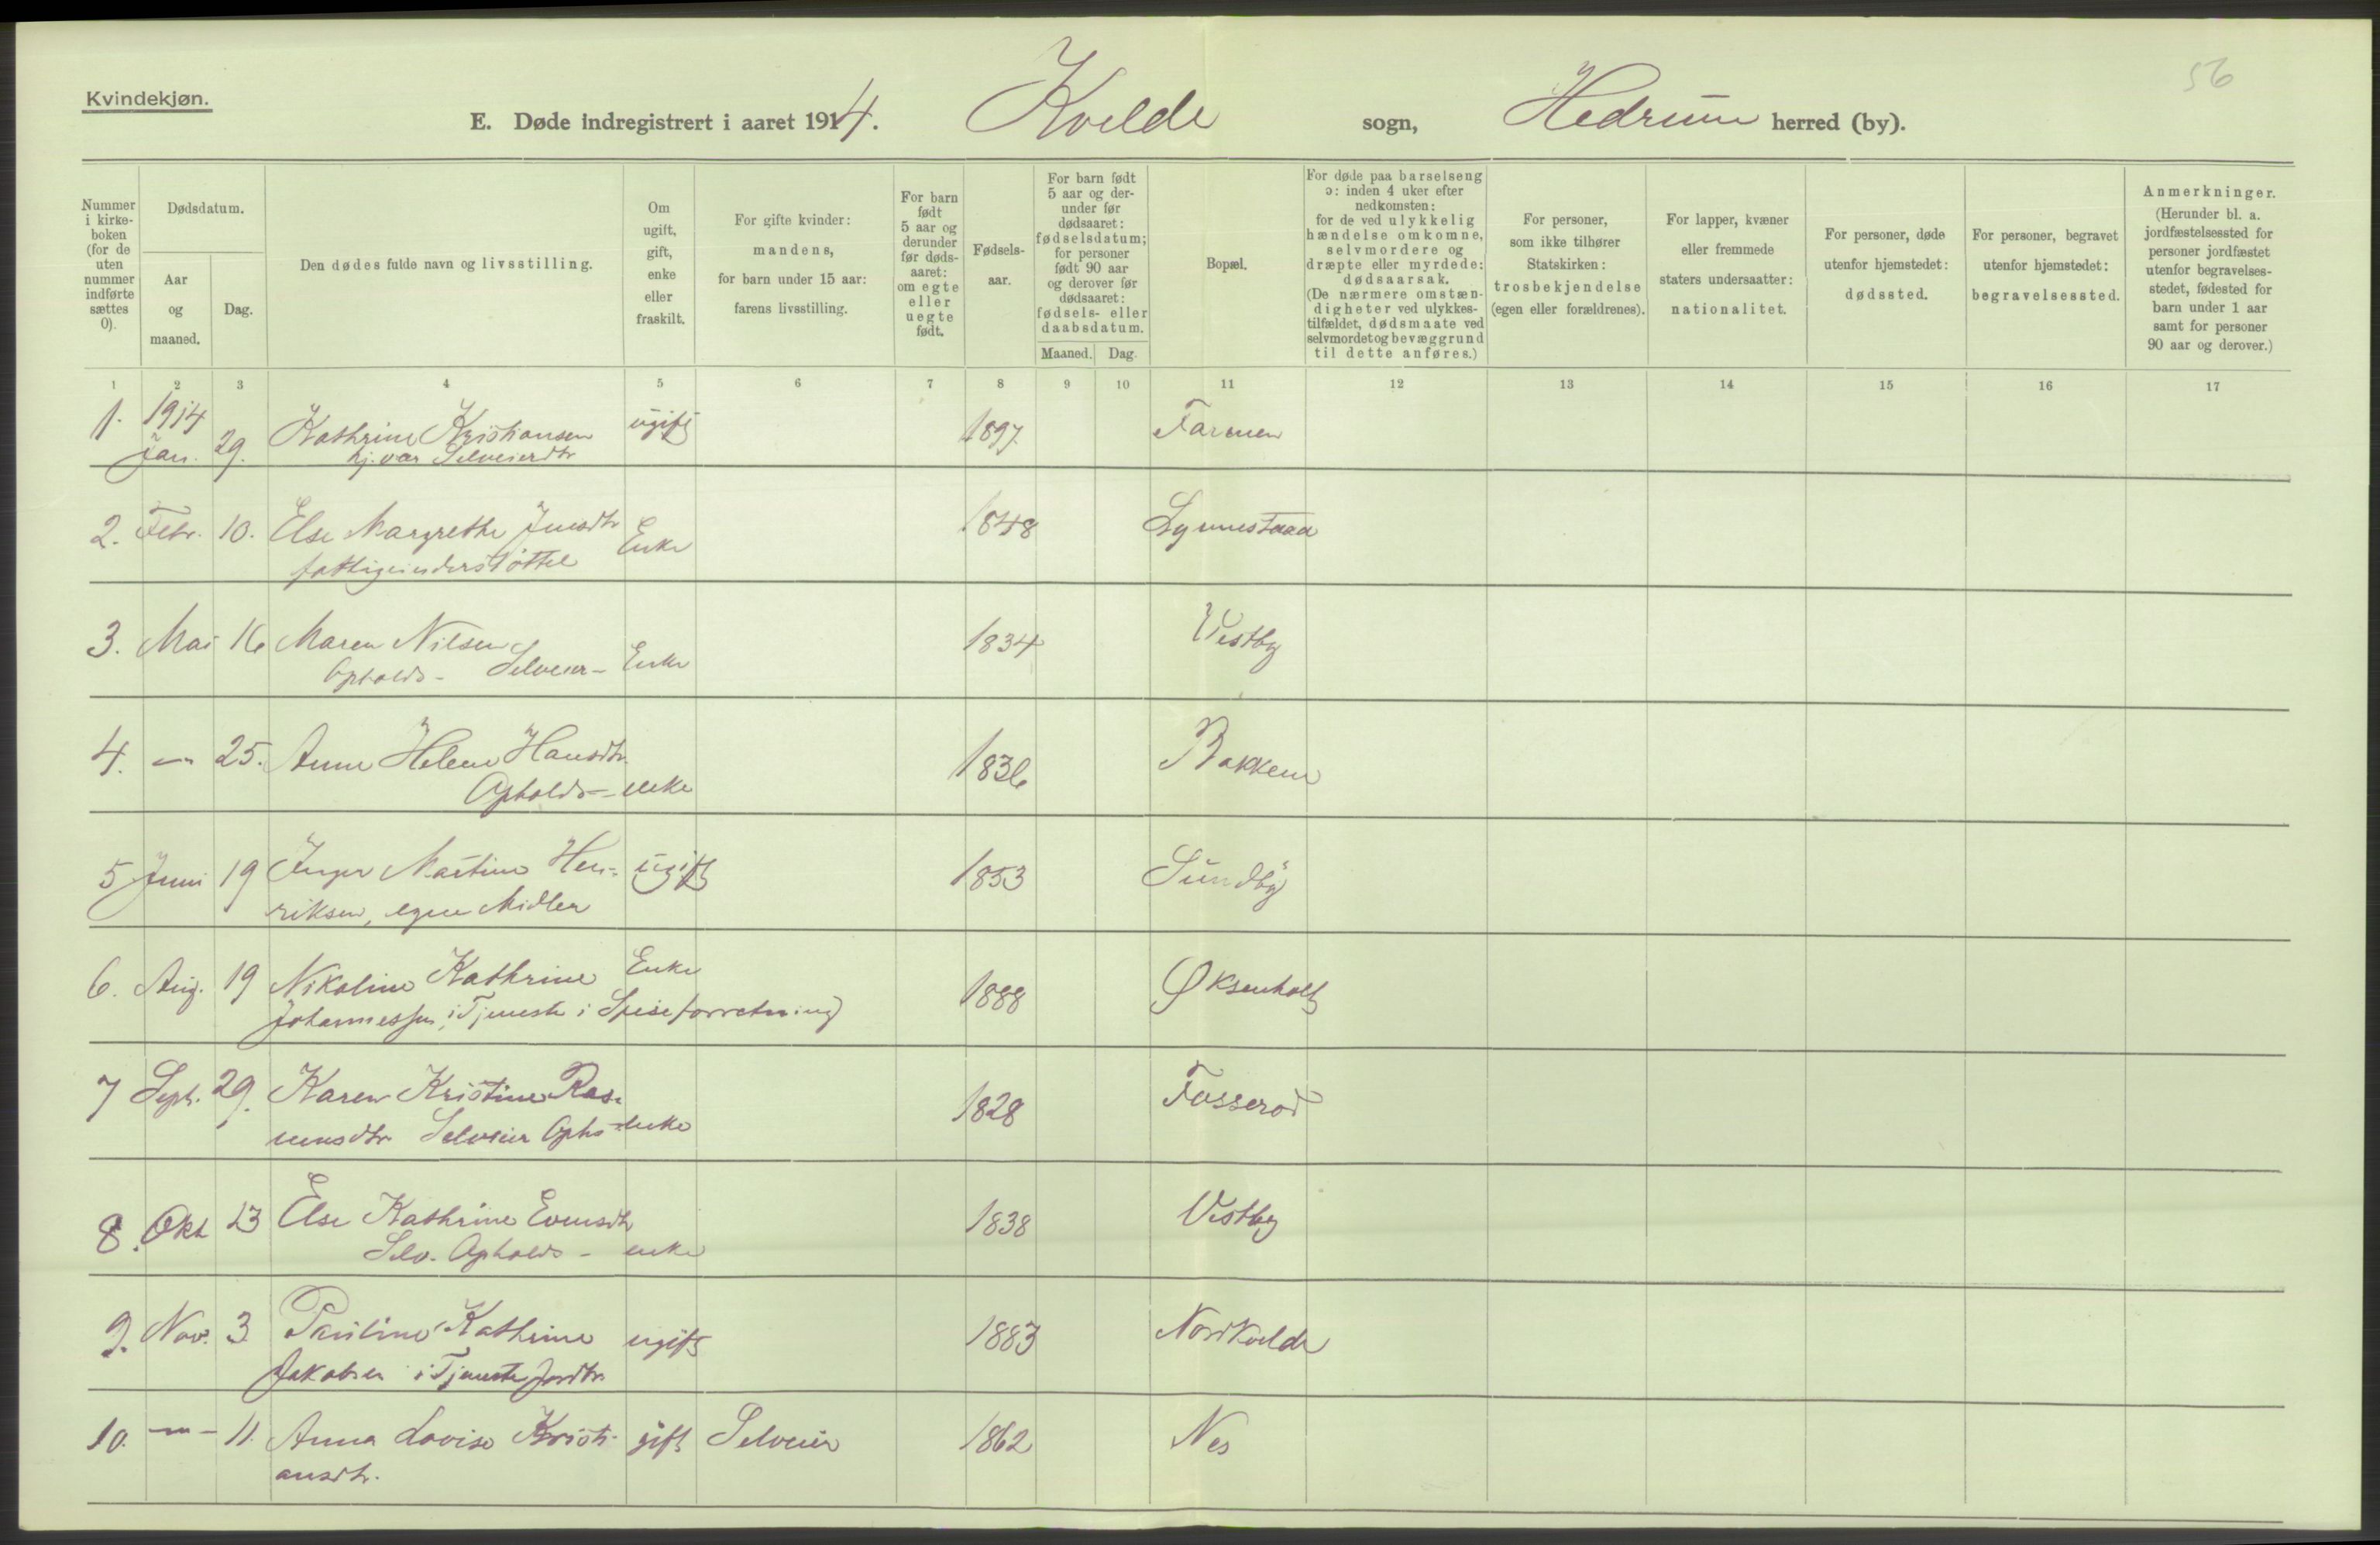 56
Kvindekjøn.
E. Døde indregistrert i aaret 1914. Kvelde sogn, Hedrum herred (by).
Nummer i kirke-boken (for de uten nummer indførte sættes 0).
Dødsdatum.
Aar og maaned.
Dag.
Den dødes fulde navn og livsstilling.
Om ugift, gift, enke eller fraskilt.
For gifte kvinder: mandens, for barn under 15 aar: farens livsstilling.
For barn født 5 aar og derunder før døds-aaret: om egte eller uegte født.
Fødsels-aar.
For barn født 5 aar og der-under før dødsaaret: fødselsdatum; for personer født 90 aar og derover før dødsaaret: fødsels- eller daabsdatum.
Maaned.
Dag.
Bopæl.
For døde paa barselseng ɔ: inden 4 uker efter nedkomsten: for de ved ulykkelig hændelse omkomne, selvmordere og dræpte eller myrdede: dødsaarsak. (De nærmere omstæn-digheter ved ulykkes-tilfældet, dødsmaate ved selvmordet og bevæggrund til dette anføres.)
For personer, som ikke tilhører Statskirken: trosbekjendelse (egen eller forældrenes).
For lapper, kvæner eller fremmede staters undersaatter: nationalitet.
For personer, døde utenfor hjemstedet: dødssted.
For personer, begravet utenfor hjemstedet: begravelsessted.
Anmerkninger. (Herunder bl. a. jordfæstelsessted for personer jordfæstet utenfor begravelses-stedet, fødested for barn under 1 aar samt for personer 90 aar og derover.)
1 2 3 4 5 6 7 8 9 10 11 12 13 14 15 16 17
1. 1914 Jan. 29. Kathrine Kristiansen ugift 1897. Farmen
hj. vær Selveierdtr
2. Febr. 10. Else Margrethe Jensdtr Enke 1848
fattigunderstøttet
3. Mai 16 Maren Nilsen 1834 Vestby
Opholds- Selveier- Enke
4. — 25. Anne Helene Hansdtr. 1836 Bakken
Opholds- enke
5 Juni 19 Inger Martine Hen- ugift 1853 Sundby
riksen, egne Midler
6. Aug. 19 Nikoline Kathrine Enke 1888 Øksenholt
Johannessen, i Tjeneste i Spiseforretning
7 Sept. 29. Karen Kristine Ras- 1828 Fosserød
musdtr Selveier Ophs- enke
8. Okt 23 Else Kathrine Evensdtr 1838 Vestby
Selv. Opholds- enke
9. Nov. 3 Pauline Kathrine ugift 1883 Nordkvelde
Jakobsen i Tjeneste Jordbr.
10. — 11. Anna Lovise Kristi- gift Selveier 1862 Nes
ansdtr.